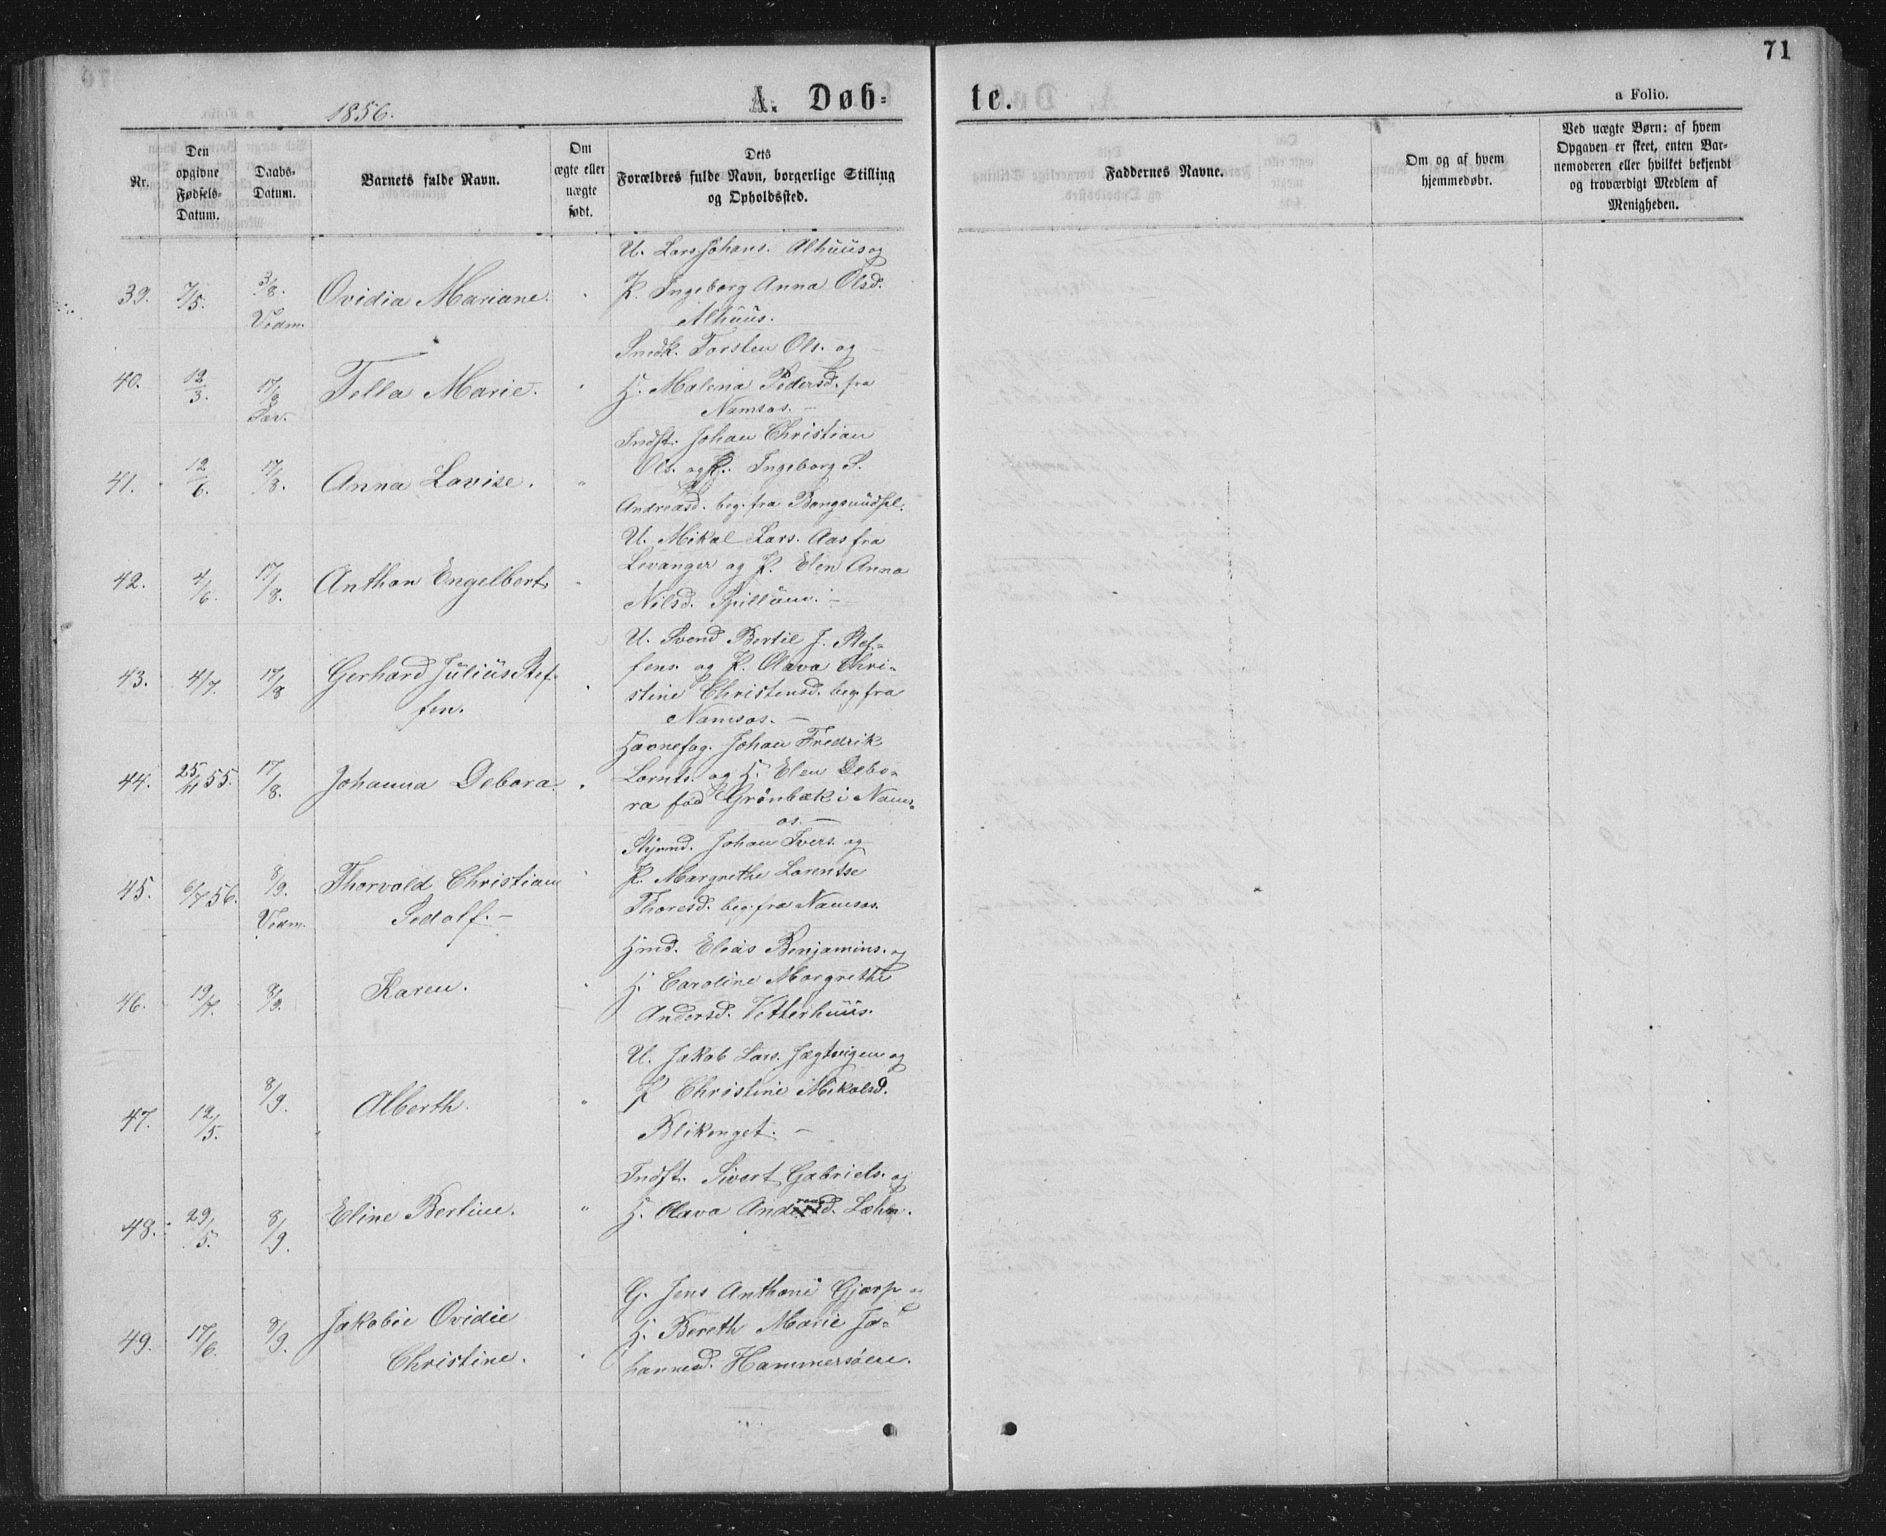 71
1856.
A. Døb-
te.
a Folio.
Nr.
Den
opgivne
Fødsels-
Datum.
Daabs-
Datum.
Barnets fulde Navn.
Om
ægte eller
uægte
født.
Dets
Forældres fulde Navn, borgerlige Stilling
og Opholdssted.
Faddernes Navne.
Om og af hvem
hjemmedøbt.
Ved uægte Børn: af hvem
Opgaven er skeet, enten Bar-
nemoderen eller hvilket bekjendt
og troværdigt Medlem af
Menigheden.
39. 7/5. 3/8. Vedm. Ovidia Mariane.
U. Lars Johans. Alhuus og
P. Ingeborg Anna Olsd.
Alhuus.
40. 12/3. 17/8 Sav. Tella Marie.
Smedk. Torsten Ols. og
H. Malena Pedersd. fra
Namsos. —
41. 12/6. 17/8. Anna Lovise. "
Indst. Johan Christian
Ols. og P. Ingeborg P.
Andreasd. beg. fra Bangsund
42. 4/6. 17/8. Anthon Engelbert.
U. Mikal Lars. Aas fra
Levanger og P. Elen Anna
Nilsd. Spillum. —
43. 4/7. 17/8 Gerhard Julius Stef-
fen.
U. Svend Bertil J. Stef-
fens. og P. Olava Chri-
stine Christensd. beg. fra
Namsos. —
44. 25/11 55. 17/8. Johanna Debora.
Havnefog. Johan Fredrik
Lornts. og H. Elen Debo-
ra fød Grönbæk i Nams-
os. —
45. 6/7 56. 8/9. Vedm. Thorvald Christian
Sedolf. —
Styrmd. Johan Ivers. og
P. Margrethe Lorentse
Thoresd. beg. fra Namsos.
46. 19/7. 8/9. Karen.
Hmd. Elias Benjamins. og
H. Caroline Margrethe
Andersd. Vetterhuus.
47. 12/5. 8/9. Alberth. "
U. Jakob Lars. Jægtvigen og
P. Christine Mikalsd.
Blikenget. —
48. 29/5. 8/9. Eline Bertine. "
Indst. Sivert Gabriels. og
H. Olava Andreasd. Læhn.
49. 17/6. 8/9. Jakobie Ovidie
Christine.
G. Jens Anthoni Gjærp og
H. Bereth Marie Jo-
hannesd. Hammersöen.